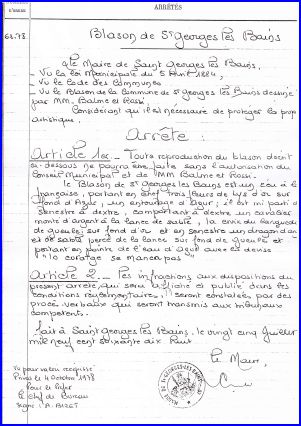 ARRÊTÉS
62.78
Blason de St Georges les Bains
Le Maire de Saint Georges les Bains,
- Vu la loi Municipale du 5 Avril 1884,
- Vu le Code des Communes
- Vu le Blason de la Commune de St Georges les Bains dessiné
par MM. Balme et Rossi.
Considérant qu'il est nécessaire de protéger la pro
artistique.
Arrête
Article 1er - Toute reproduction du blason décrit
ci-dessous ne pourra être faite sans l'autorisation du
Conseil Municipal et de MM Balme et Rossi.
Le Blason de St Georges les Bains est un écu à la
française, portant en chef trois fleurs de lys d'or sur
fond d'Azur, un entourage d'azur; il est mi parti
senestre à dextre, comportant à dextre un cavalier
monté d'argent à la lance de sable,
de gueule, sur fond d'or et en senestre un dragon d'or
et de sable percé de la lance sur fond de gueule et
portant en pointe de l'eau d'azur avec la devise
"lo coratge se manco pas"
Article 2 - Les infractions aux dispositions du
présent arrêté, qui sera affiché et publié dans les
conditions règlementaires, seront constatées, par des
procès verbaux qui seront transmis aux tribunaux
compétents.
fait à Saint Georges les Bains, le vingt cinq Juillet
mil neuf cent soixante dix huit
Le Maire,
Vu pour valoir récépissé
Privas le 4 Octobre 1978
Pour le Préfet
Le Chef de Bureau
Signé : A. BIZET